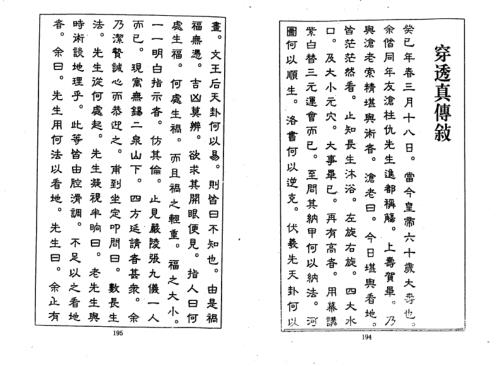 穿透真傳敘
癸巳年春三月十八日。當今皇帝六十歲大壽也。
余偕同年友滄柱仇先生進都稱觴。上壽賀畢。乃
與滄老索精堪輿術者。滄老曰。今日堪輿看地。
皆茫茫然看。止知長生沐浴。左旋右旋。四大水
口。及大小元穴。大事畢已。再有高者。用幕講
紫白替三元運會而已。至問其納甲何以納法。河
圖何以順生。洛書何以逆克。伏羲先天卦何以
194
畫。文王后天卦何以易。則皆曰不知也。由是禍
福無憑。吉凶莫辨。欲求其開眼便見。指人曰何
處生福。何處生禍。而且禍之輕重。福之大小。
一一明白指示者。仿其倫。止見嚴陵張九儀一人
而已。現寓無錫二泉山下。四方延請者甚衆。余
乃潔贄誠心而恭迎之。甫到坐定叩問曰。數長生
法。先生從何處起。先生凝視半晌曰。老先生與
時術談地理乎。此等皆由腔濟調。不足以之看地
者。余曰。先生用何法以看地。先生曰。余止有
195